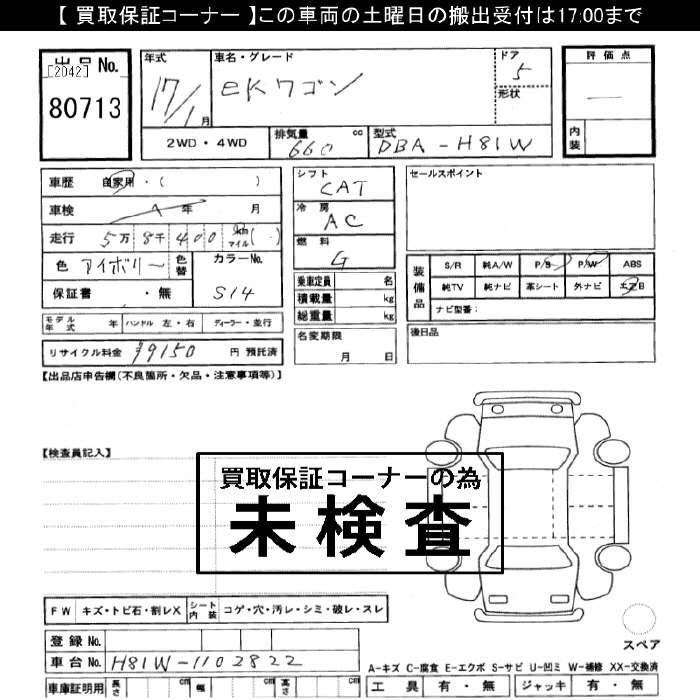 【 買取保証コーナー 】この車両の土曜日の搬出受付は17:00まで
出品 No.
[2042]
80713
年式
17/1月
車名・グレード
eKワゴン
ドア
5
形状
評価点
内装
2WD・4WD
排気量
660
cc
型式
DBA-H81W
車歴 自家用・( )
車検 年 月
走行 5万 8千 400 km マイル( )
色 アイボリー 色替
カラーNo.
S14
保証書 ・無
シフト
CAT
冷房
AC
燃料
G
乗車定員 名
積載量 kg
総重量 kg
名変期限
月 日
セールスポイント
装備品
S/R 純A/W P/S P/W ABS
純TV 純ナビ 革シート 外ナビ エアB
ナビ型番:
後日品
モデル年式 年 ハンドル 左・右 ディーラー・並行
リサイクル料金 ¥9150 円 預託済
【出品店申告欄(不良箇所・欠品・注意事項等)】
【検査員記入】
買取保証コーナーの為
未検査
FW キズ・トビ石・割レX シート内装 コゲ・穴・汚レ・シミ・破レ・スレ
登録 No.
車台 No. H81W-1102822
車庫証明用 長さ cm 幅 cm 高さ cm
スペア
A-キズ C-腐食 E-エクボ S-サビ U-凹ミ W-補修 XX-交換済
工具 有・無 ジャッキ 有・無